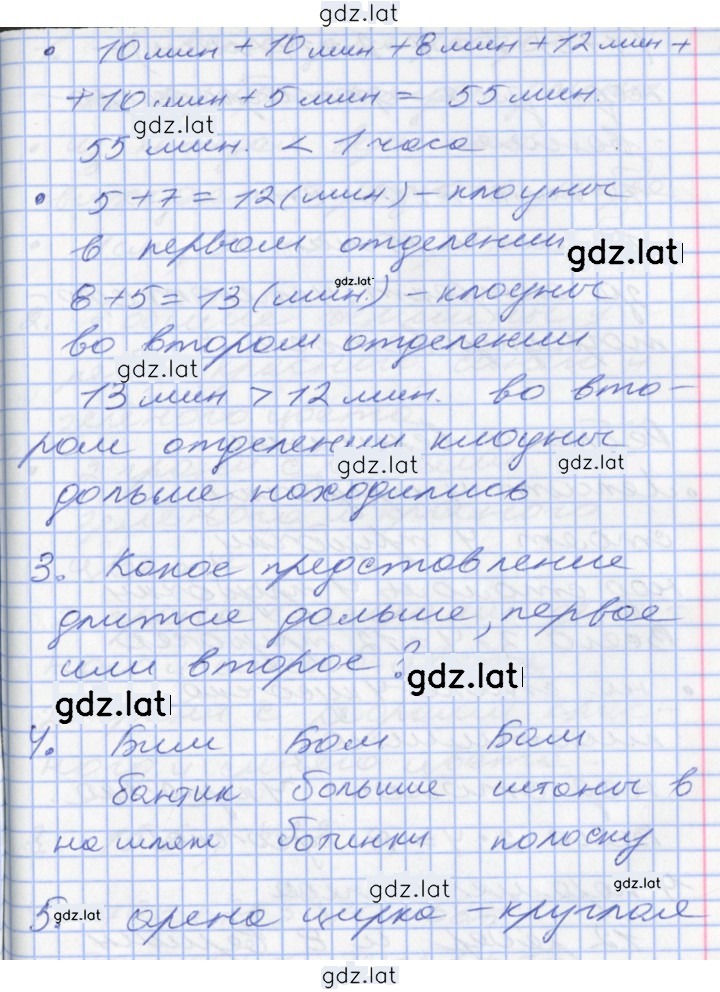 gdz.lat
• 10 мин + 10 мин + 8 мин + 12 мин +
+ 10 мин + 5 мин = 55 мин.
gdz.lat
55 мин. < 1 часа
• 5 + 7 = 12 (мин.) - клоуны
в первом отделении
gdz.lat
gdz.lat
8 + 5 = 13 (мин.) - клоуны
во втором отделении
gdz.lat
13 мин > 12 мин. во вто-
ром отделении клоуны
gdz.lat gdz.lat
дольше находились
3. Какое представление
длится дольше, первое
или второе?
gdz.lat
gdz.lat
4. Бим Бом Бам
бантик большие штаны в
на шляпе ботинки полоску
gdz.lat gdz.lat
5. арена цирка - круглая
gdz.lat
gdz.lat